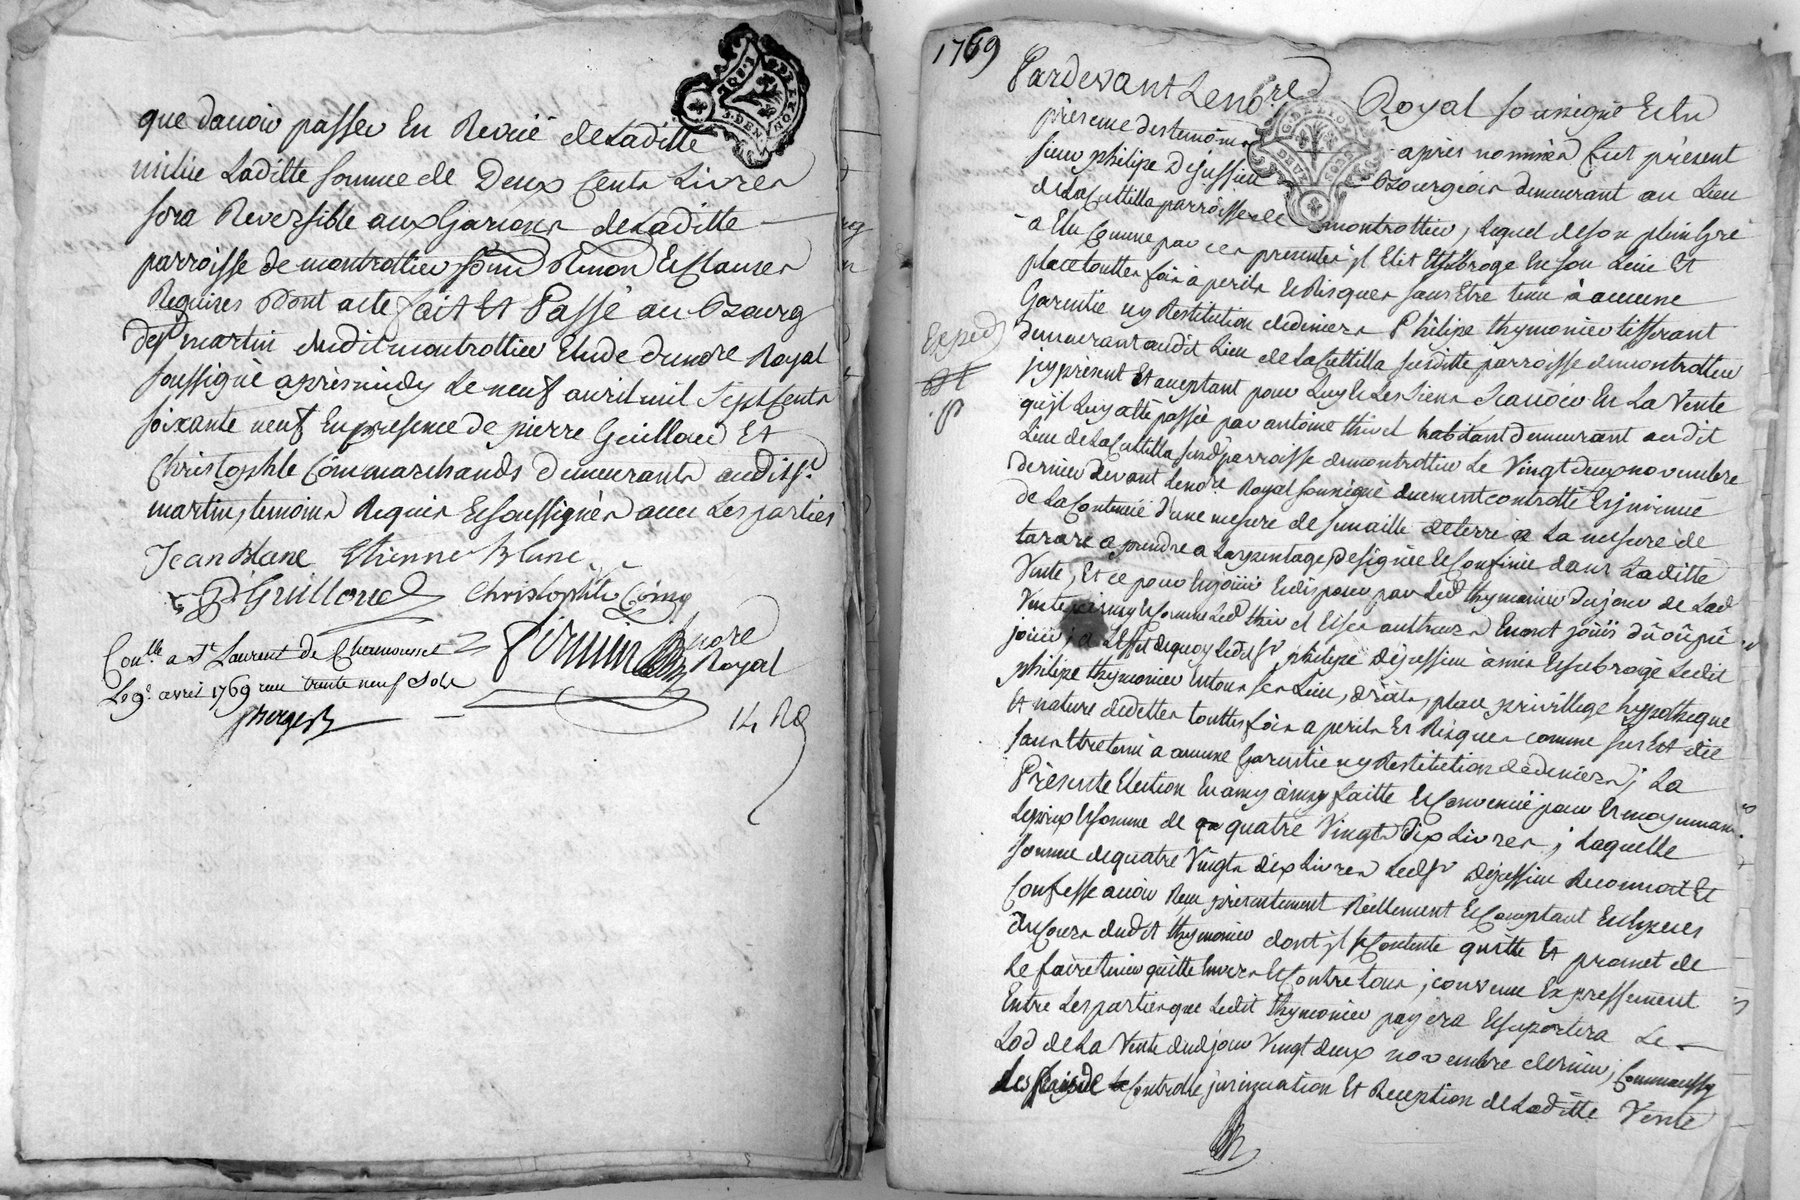 que davoir passer En Reviie de Laditte
milice Laditte somme de Deux Cents Livres
sera Reversible aux Garçons de Laditte
parroisse de montrottier sous Renon Et Clauses
Requises Dont acte fait Et Passé au Bourg
de st martin dudit montrottier Etude du nore Royal
soussigné après midy Le neuf avril mil Sept Cents
soixante neuf En presence de pierre Guilloud Et
Christophle Coin marchands demeurants audit st
martin, temoins Requis Et soussignés avec Les parties
Jean Blanc Etienne Blanc
P Guilloud Christophle Coing
Con.lle a St Laurent de Chamousset
Le 9e avril 1769 reçu trente neuf Sols
nore
Royal
1769
Pardevant Le nore Royal soussigné Et En
présence des temoins après nommés Eut présent
sieur philipe Dejussieu Bourgeois demeurant au Lieu
de La Cuttilla parroisse de montrottier, Lequel de son plein gré
a Elu Comme par ces presentes jl Elit Et subroge En son Lieu Et
place touttes fois à perils Et Risques sans Etre tenu à aucune
Garentie ny Restitution de deniers Philipe thymonier tisserant
Exped
demeurant audit Lieu de La Cuttilla susditte parroisse de montrottier
jcy présent Et aceptant pour Luy Et Les Siens Scavoir En La Vente
qu'jl Luy a été passée par antoine thivel habitant demeurant audit
Lieu de La Cuttilla susd parroisse de montrottier Le Vingt deux novembre
dernier devant Le nore Royal soussigné duement controllé Et jnsinué
de La Contenüe d'une mesure de semaille de terre a La mesure de
tarare a prendre a Larpentage, Designée Et Confinée dans Laditte
Vente, Et ce pour En jouir Et disposer par Led thymonier du jour de Lad
Vente Et Comme Led thivel Et Ses autheurs En ont joüis dû oû pû
joüir; a L'effet de quoy Ledit Sr philipe Dejussieu à mis Et subrogé Ledit
philipe thymonier En tous ses Lieu, droits, place privillege hypotheque
Et nature de dettes touttes fois a perils Et Risques comme sus Est dit
sans Etre tenu à aucune Garentie ny Restitution de deniers; La
Présente Election En amy faitte Et Convenüe pour Et moyennant
Le prix Et somme de quatre Vingts Dix Livres; Laquelle
somme de quatre Vingts dix Livres Ledsr Dejussieu Reconnoit Et
Confesse avoir Reçu présentement Réellement Et Comptant En Especes
de Cours dudit thymonier dont jl se Contente quitte Et promet de
Le faire tenir quitte Envers Et Contre tous; convenu Expressement
Entre Les parties que Ledit thymonier payera Et suportera Le
Lod de La Vente dud jour Vingt deux novembre dernier; Comme aussy
Les frais de Controlle jnsinuation Et Reception de Laditte Vente